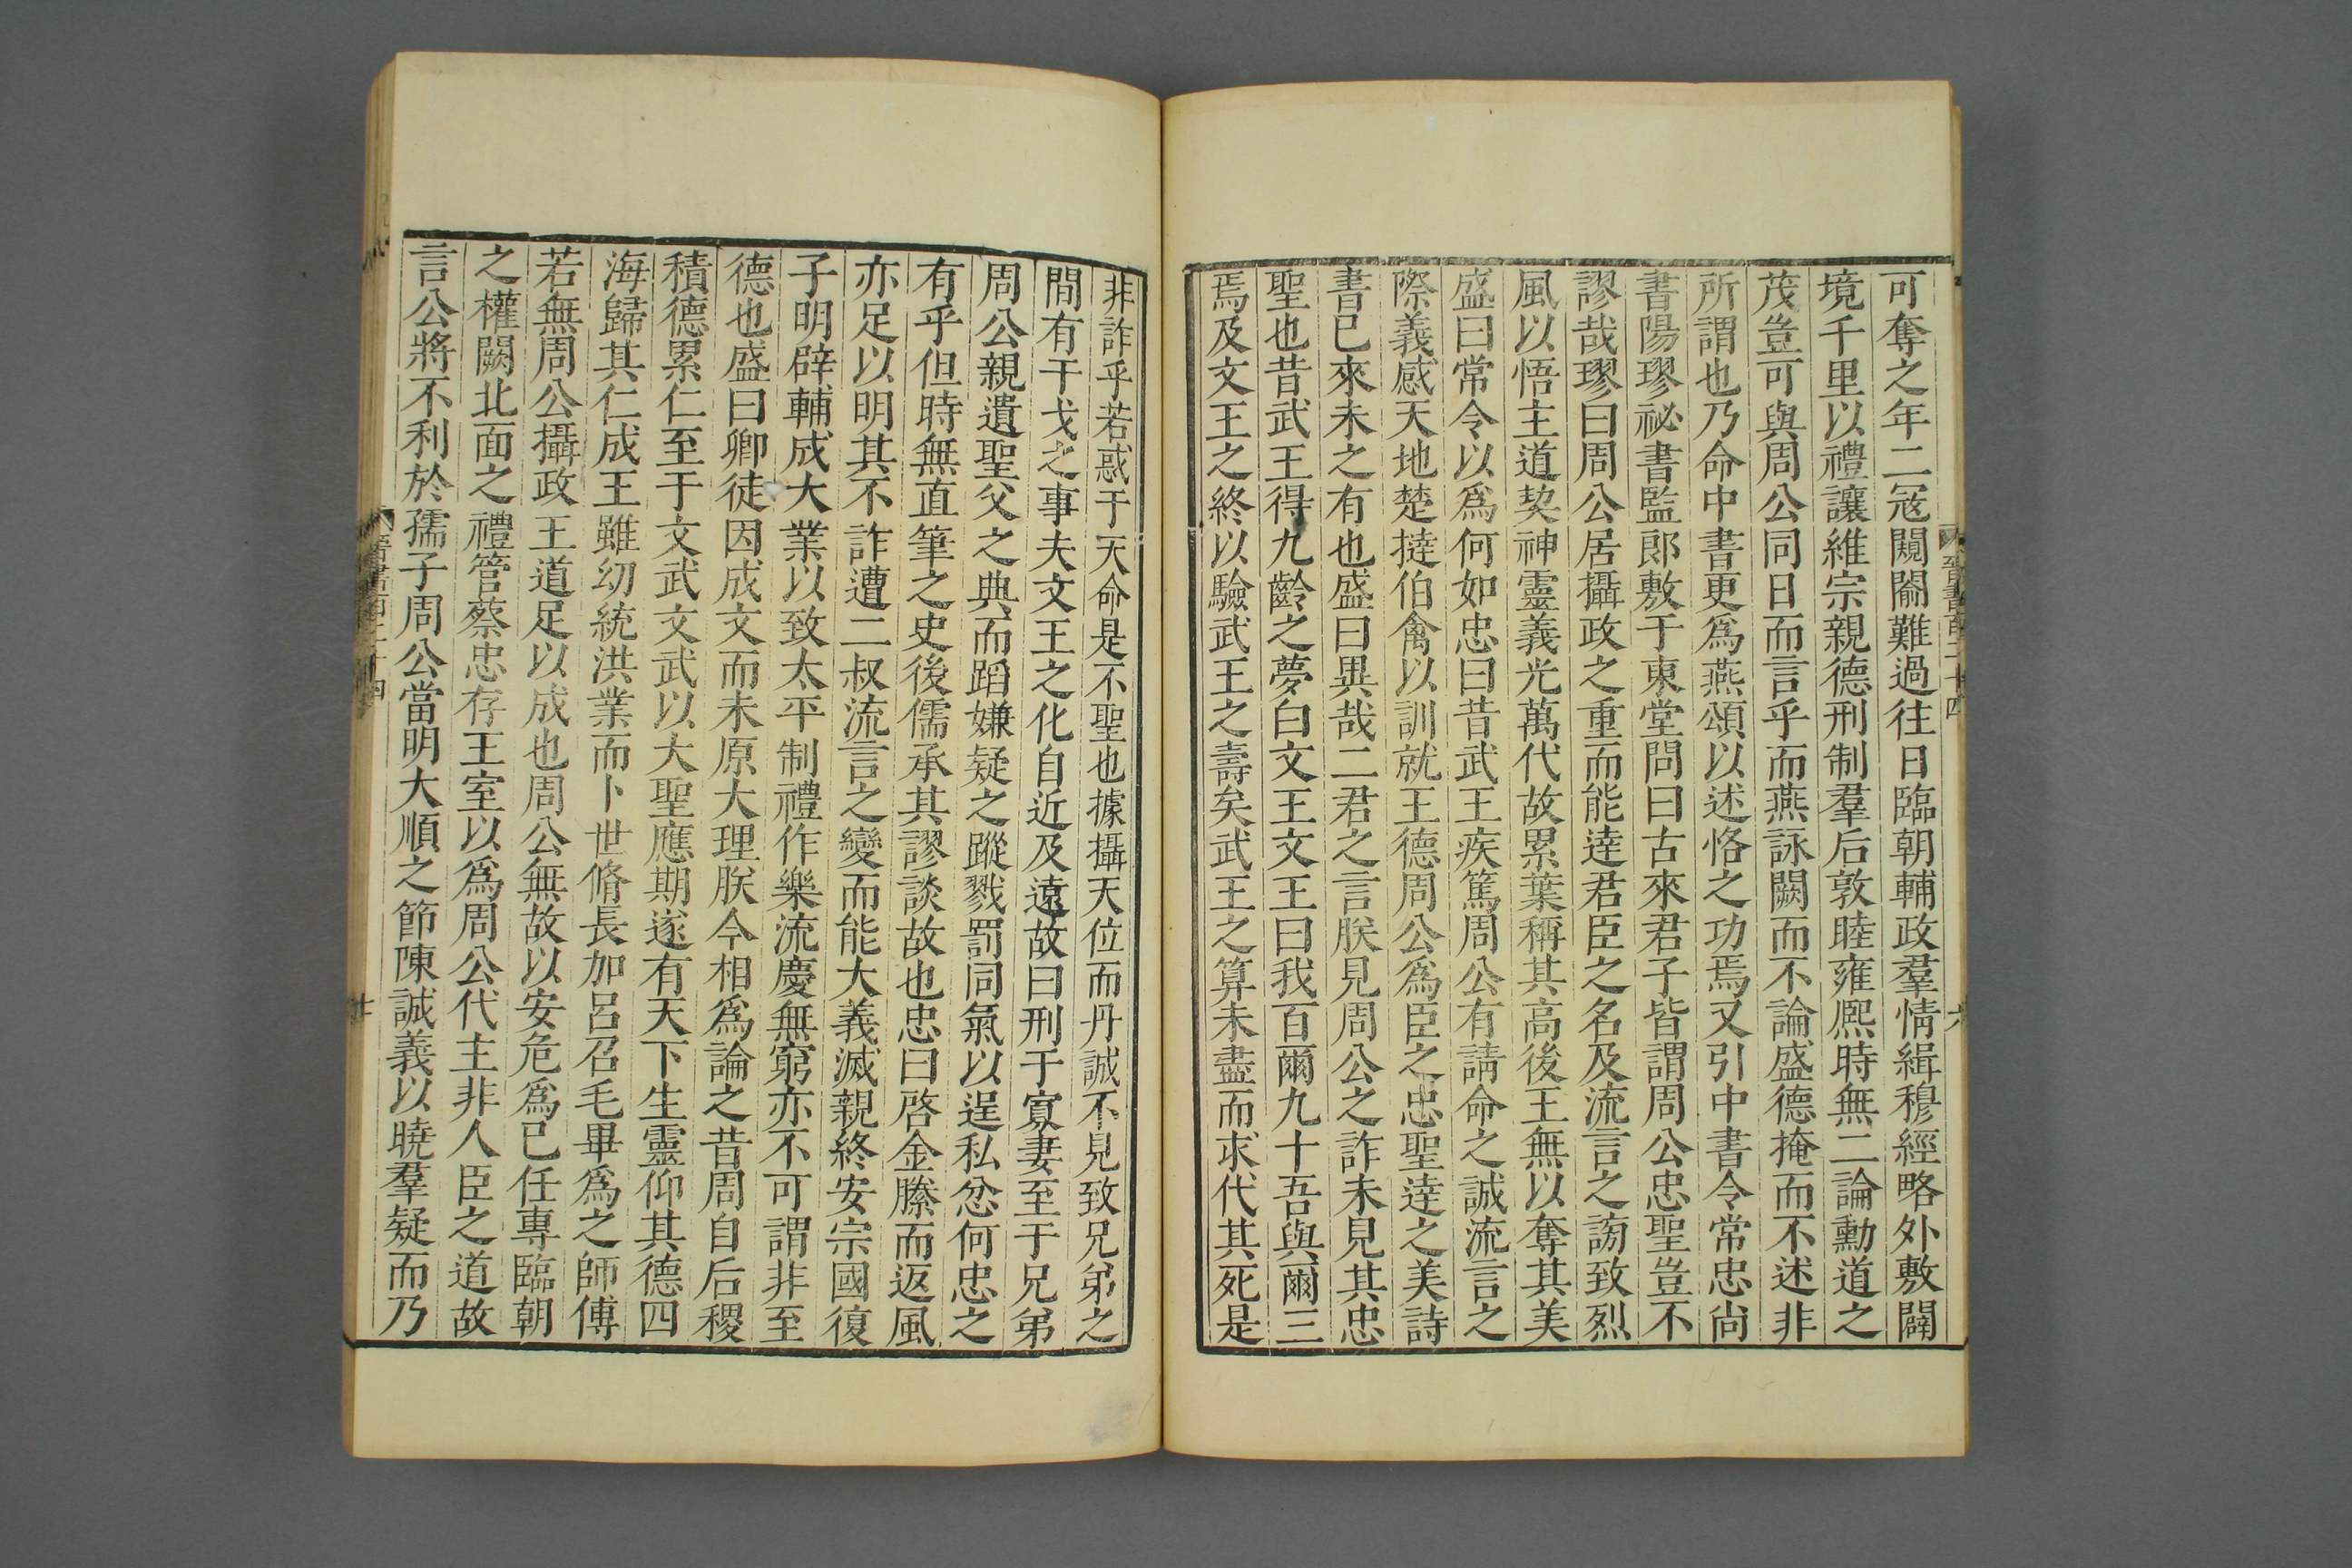 可奪之年二寇闚𨵦難過往日臨朝輔政羣情緝穆經略外敷闢
境千里以禮讓維宗親德刑制羣后敦睦雍熈時無二論勳道之
茂豈可與周公同日而言乎而燕詠闕而不論盛德掩而不述非
所謂也乃命中書更爲燕頌以述恪之功焉又引中書令常忠尙
書陽璆祕書監郎敷于東堂問曰古來君子皆謂周公忠聖豈不
謬哉璆曰周公居攝政之重而能達君臣之名及流言之謗致烈
風以悟主道契神靈義光萬代故累葉稱其高後王無以奪其美
盛曰常令以爲何如忠曰昔武王疾篤周公有請命之誠流言之
際義感天地楚撻伯禽以訓就王德周公爲臣之忠聖達之美詩
書已來未之有也盛曰異哉二君之言朕見周公之詐未見其忠
聖也昔武王得九齡之夢白文王文王曰我百爾九十吾與爾三
焉及文王之終以驗武王之壽矣武王之算未盡而求代其死是
非詐乎若惑于天命是不聖也據攝天位而丹誠不見致兄弟之
間有干戈之事夫文王之化自近及遠故曰刑于寡妻至于兄弟
周公親遺聖父之典而蹈嫌疑之蹤戮罰同氣以逞私忿何忠之
有乎但時無直筆之史後儒承其謬談故也忠曰啓金縢而返風
亦足以明其不詐遭二叔流言之變而能大義滅親終安宗國復
子明辟輔成大業以致太平制禮作樂流慶無窮亦不可謂非至
德也盛曰卿徒因成文而未原大理朕今相爲論之昔周自后稷
積德累仁至于文武文武以大聖應期遂有天下生靈仰其德四
海歸其仁成王雖幼統洪業而卜世脩長加呂召毛畢爲之師傅
若無周公攝政王道足以成也周公無故以安危爲已任專臨朝
之權闕北面之禮管蔡忠存王室以爲周公代主非人臣之道故
言公將不利於孺子周公當明大順之節陳誠義以曉羣疑而乃
晉書百二十四
六
晉書百二十四